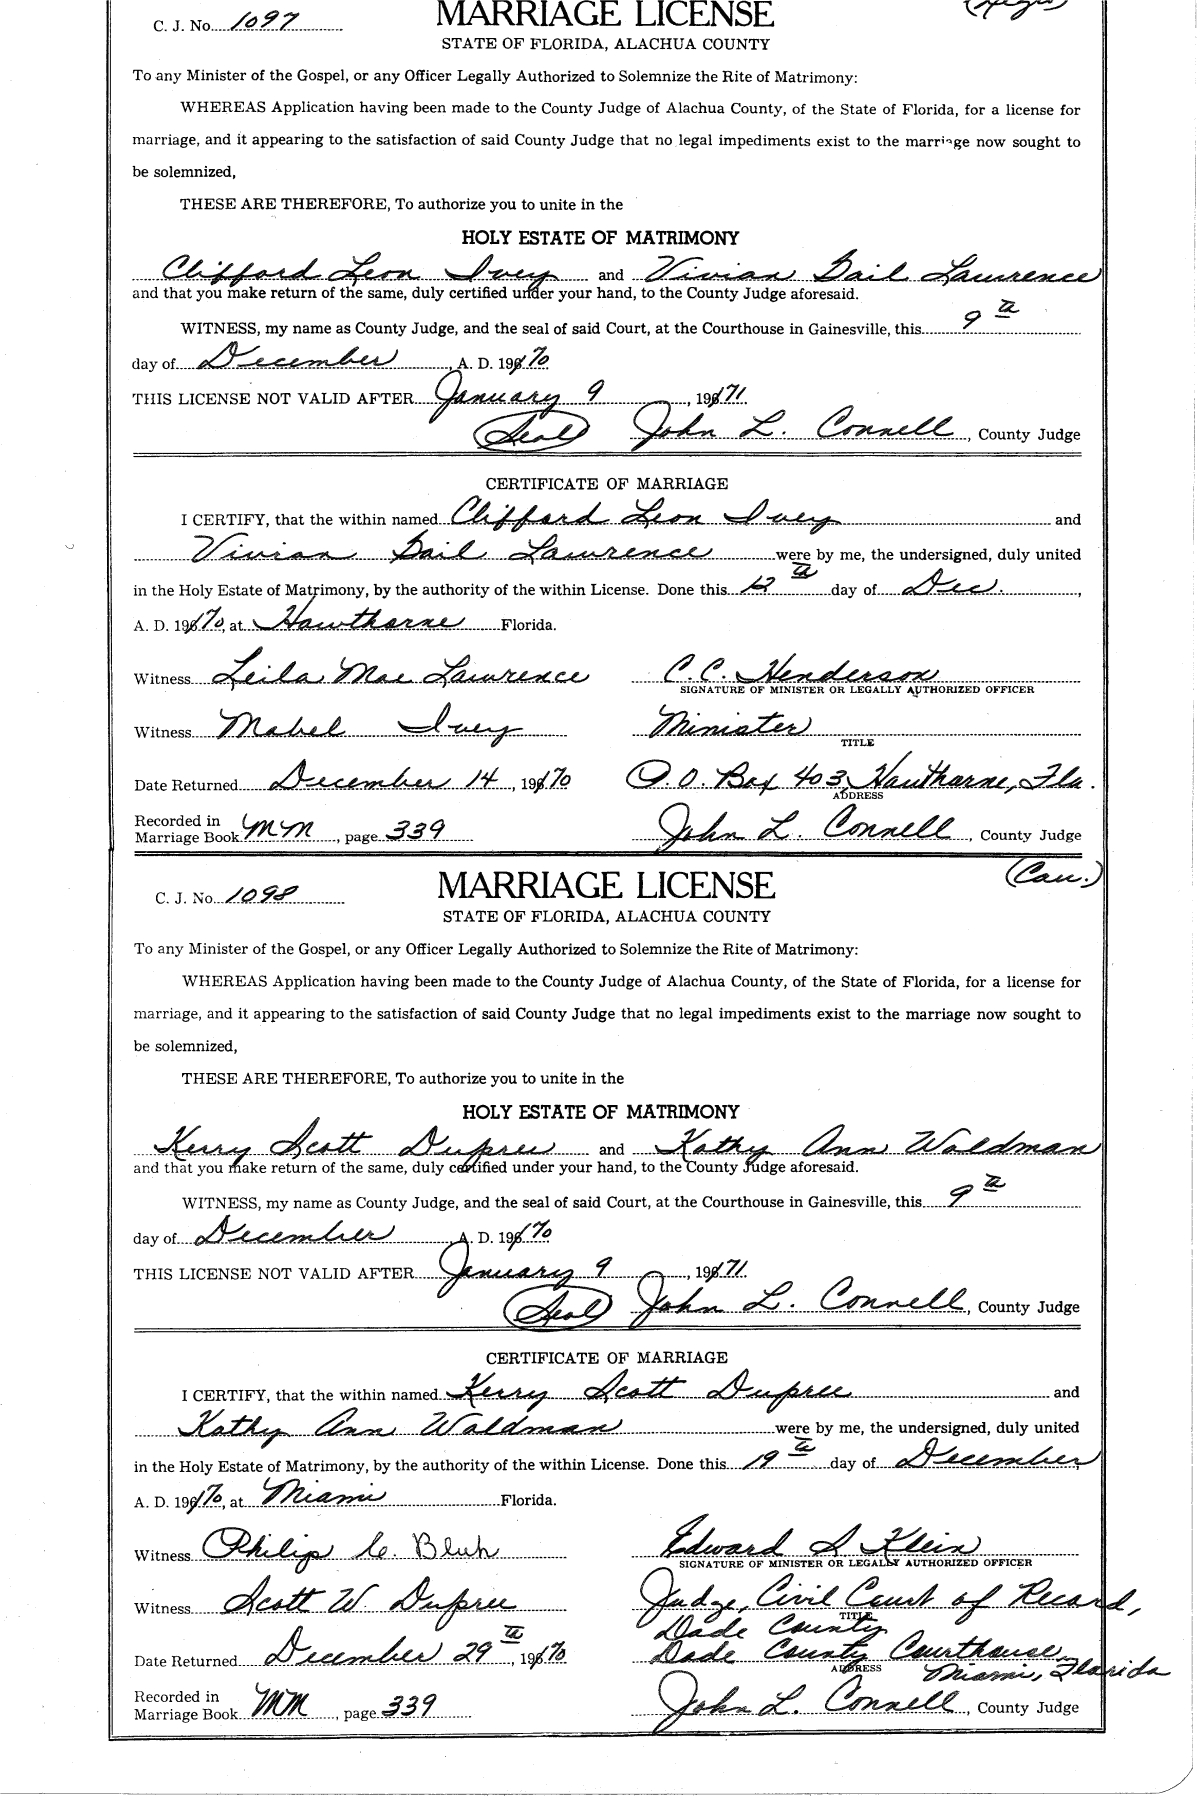 C. J. No. 1097
MARRIAGE LICENSE
STATE OF FLORIDA, ALACHUA COUNTY
To any Minister of the Gospel, or any Officer Legally Authorized to Solemnize the Rite of Matrimony:
WHEREAS Application having been made to the County Judge of Alachua County, of the State of Florida, for a license for
marriage, and it appearing to the satisfaction of said County Judge that no legal impediments exist to the marriage now sought to
be solemnized,
THESE ARE THEREFORE, To authorize you to unite in the
HOLY ESTATE OF MATRIMONY
Clifford Leon Ivey and Vivian Gail Lawrence
and that you make return of the same, duly certified under your hand, to the County Judge aforesaid.
WITNESS, my name as County Judge, and the seal of said Court, at the Courthouse in Gainesville, this 9th
day of December, A. D. 1970
THIS LICENSE NOT VALID AFTER January 9, 1971
(Seal) John L. Connell, County Judge
CERTIFICATE OF MARRIAGE
I CERTIFY, that the within named Clifford Leon Ivey and
Vivian Gail Lawrence were by me, the undersigned, duly united
in the Holy Estate of Matrimony, by the authority of the within License. Done this 12th day of Dec.,
A. D. 1970, at Hawthorne Florida.
Witness Leila Mae Lawrence C. C. Henderson
SIGNATURE OF MINISTER OR LEGALLY AUTHORIZED OFFICER
Witness Mabel Ivey Minister
TITLE
Date Returned December 14, 1970 P.O. Box 403, Hawthorne, Fla.
ADDRESS
Recorded in
Marriage Book MM, page 339 John L. Connell, County Judge
(Cau.)
C. J. No. 1098
MARRIAGE LICENSE
STATE OF FLORIDA, ALACHUA COUNTY
To any Minister of the Gospel, or any Officer Legally Authorized to Solemnize the Rite of Matrimony:
WHEREAS Application having been made to the County Judge of Alachua County, of the State of Florida, for a license for
marriage, and it appearing to the satisfaction of said County Judge that no legal impediments exist to the marriage now sought to
be solemnized,
THESE ARE THEREFORE, To authorize you to unite in the
HOLY ESTATE OF MATRIMONY
Kerry Scott Dupree and Kathy Ann Waldman
and that you make return of the same, duly certified under your hand, to the County Judge aforesaid.
WITNESS, my name as County Judge, and the seal of said Court, at the Courthouse in Gainesville, this 9th
day of December, A. D. 1970
THIS LICENSE NOT VALID AFTER January 9, 1971
(Seal) John L. Connell, County Judge
CERTIFICATE OF MARRIAGE
I CERTIFY, that the within named Kerry Scott Dupree and
Kathy Ann Waldman were by me, the undersigned, duly united
in the Holy Estate of Matrimony, by the authority of the within License. Done this 19th day of December,
A. D. 1970, at Miami Florida.
Witness Philip C. Bluh Edward S Klein
SIGNATURE OF MINISTER OR LEGALLY AUTHORIZED OFFICER
Witness Scott W. Dupree Judge, Civil Court of Record,
TITLE
Dade County
Date Returned December 29th, 1970 Dade County Courthouse,
ADDRESS
Miami, Florida
Recorded in
Marriage Book MM, page 339 John L. Connell, County Judge